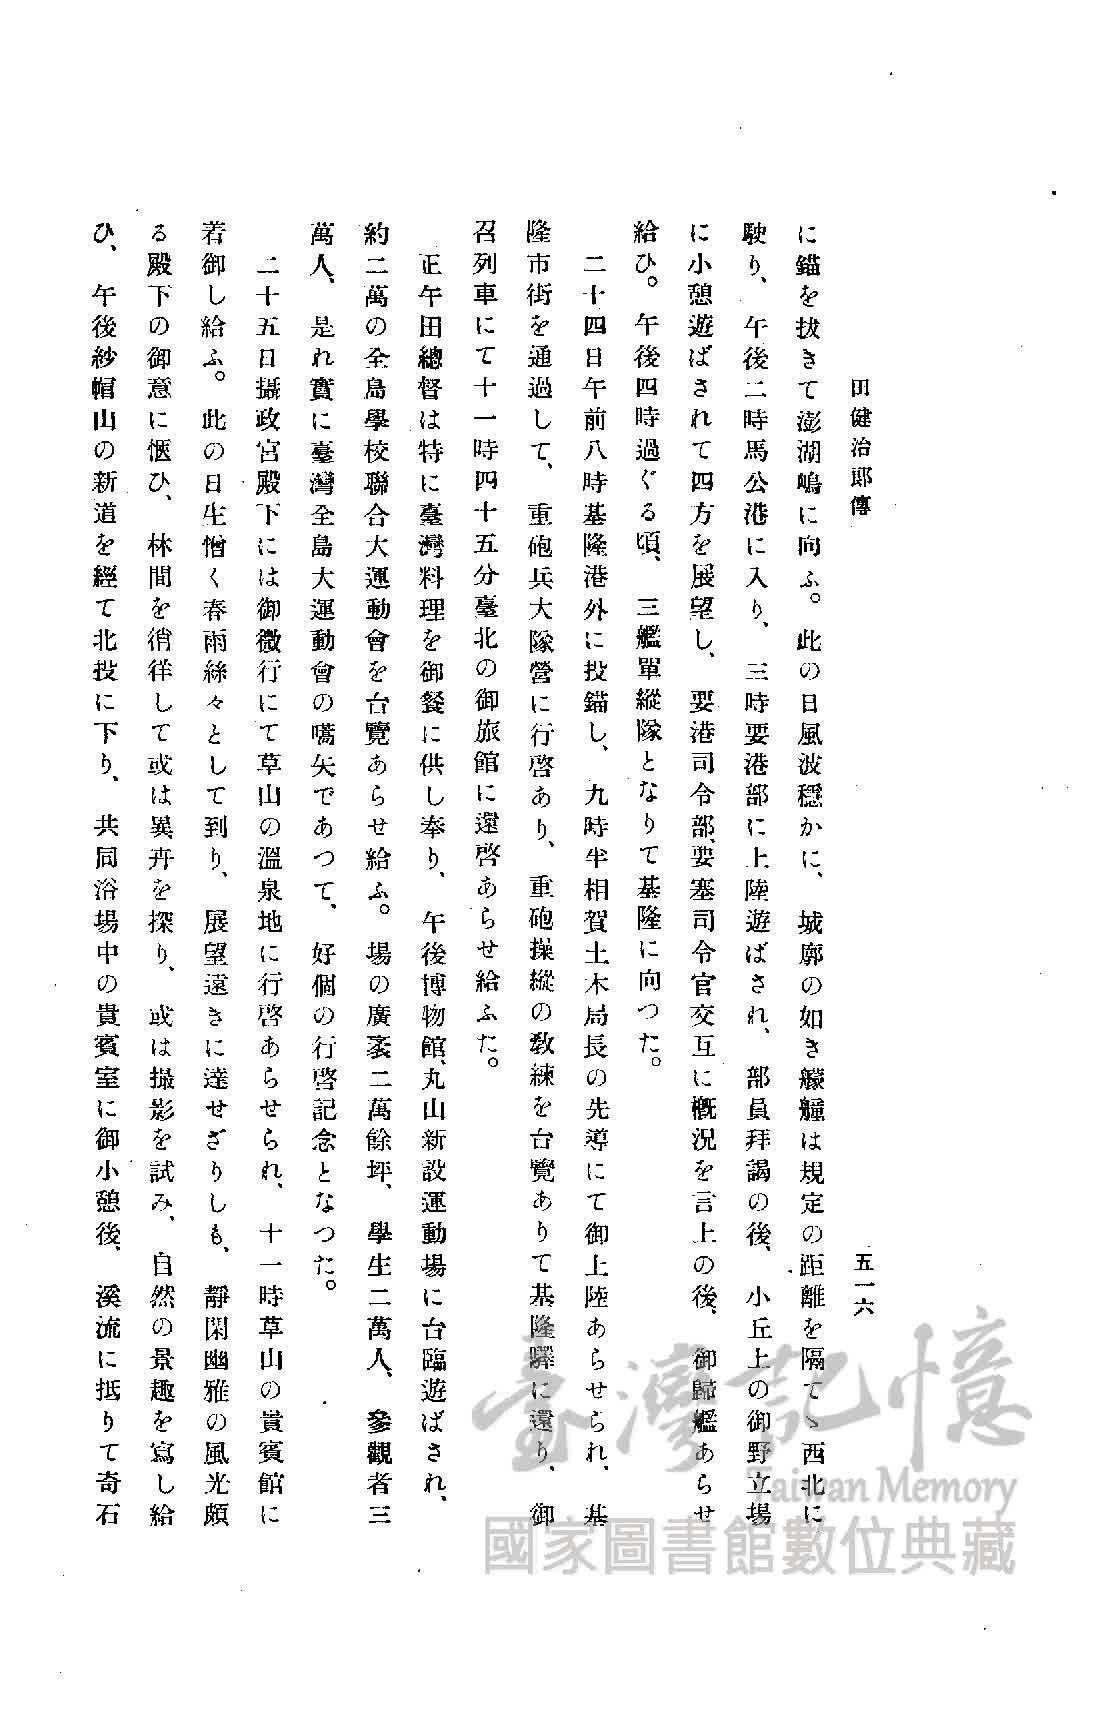 田健治郎傳
五一六
に錨を拔きて澎湖嶋に向ふ。此の日風波穩かに、城廓の如き艨艟は規定の距離を隔てゝ西北に
駛り、午後二時馬公港に入り、三時要港部に上陸遊ばされ、部員拜謁の後、小丘上の御野立場
に小憩遊ばされて四方を展望し、要港司令部、要塞司令官交互に概況を言上の後、御歸艦あらせ
給ひ。午後四時過ぐる頃、三艦單縱隊となりて基隆に向つた。
二十四日午前八時基隆港外に投錨し、九時半相賀土木局長の先導にて御上陸あらせられ、基
隆市街を通過して、重砲兵大隊營に行啓あり、重砲操縱の敎練を台覽ありて基隆驛に還り、御
召列車にて十一時四十五分臺北の御旅館に還啓あらせ給ふた。
正午田總督は特に臺灣料理を御餐に供し奉り、午後博物館、丸山新設運動場に台臨遊ばされ、
約二萬の全島學校聯合大運動會を台覽あらせ給ふ。場の廣袤二萬餘坪、學生二萬人、參觀者三
萬人、是れ實に臺灣全島大運動會の嚆矢であつて、好個の行啓記念となつた。
二十五日攝政宮殿下には御微行にて草山の溫泉地に行啓あらせられ、十一時草山の貴賓館に
着御し給ふ。此の日生憎く春雨絲々として到り、展望遠きに達せざりしも、靜閑幽雅の風光頗
る殿下の御意に愜ひ、林間を徜徉して或は異卉を探り、或は撮影を試み、自然の景趣を寫し給
ひ、午後紗帽山の新道を經て北投に下り、共同浴場中の貴賓室に御小憩後、溪流に抵りて奇石
臺灣記憶
Taiwan Memory
國家圖書館數位典藏